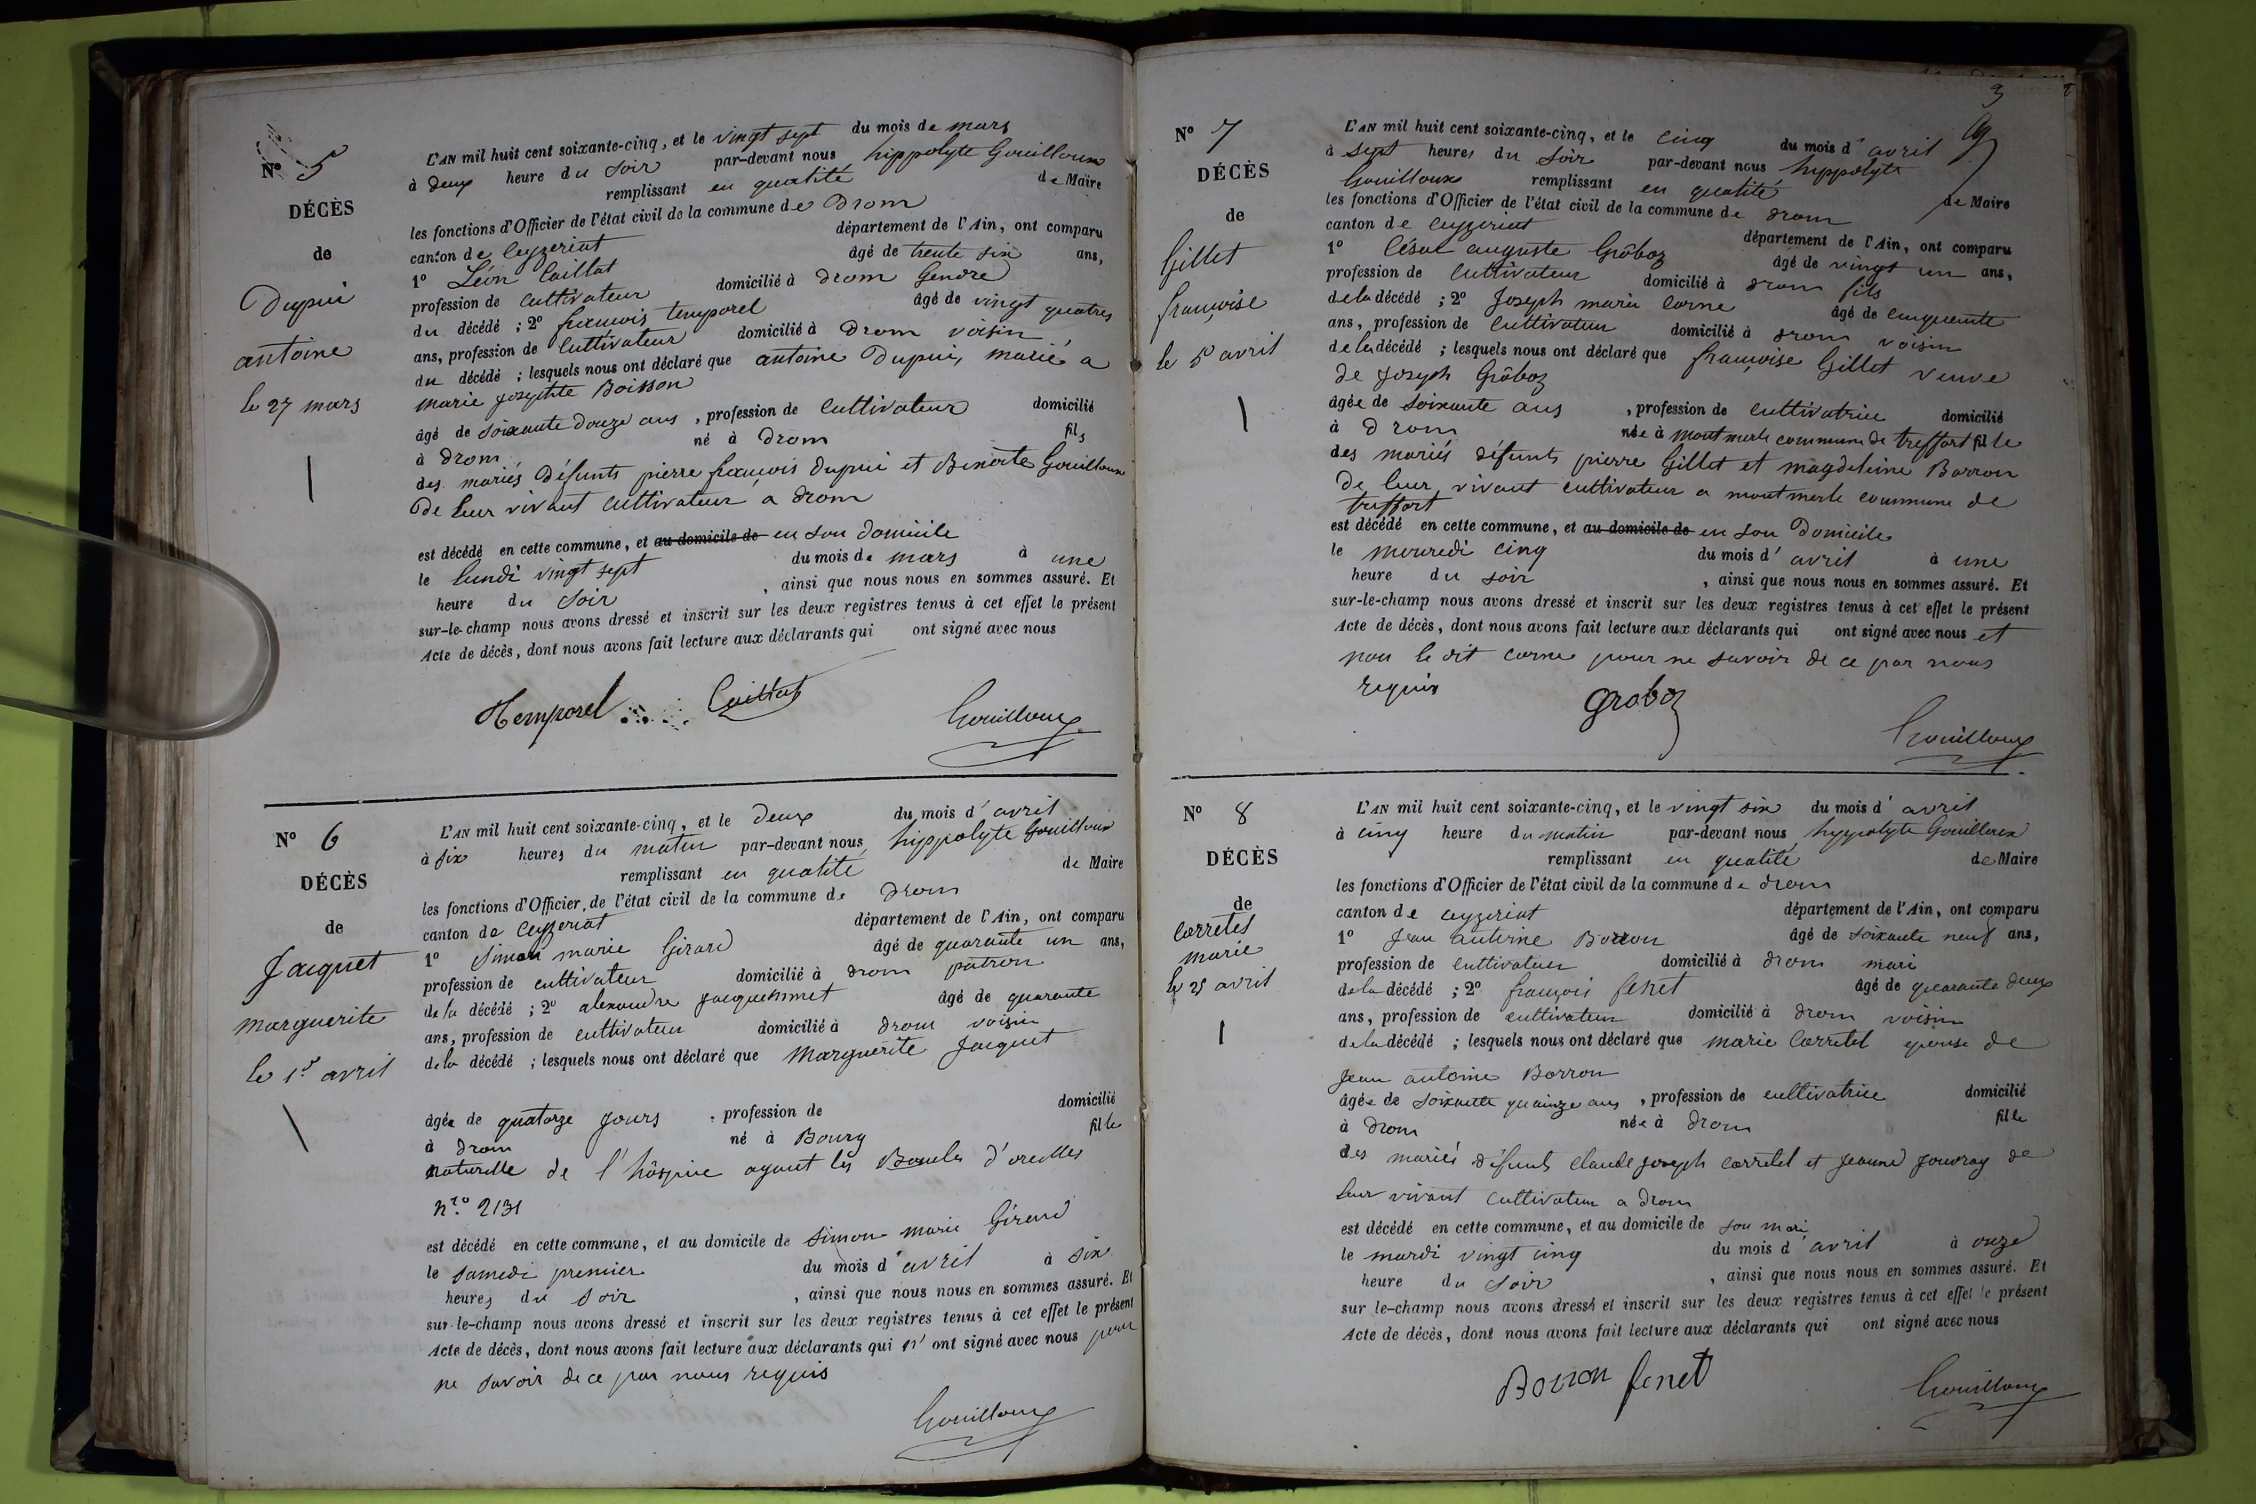 Nº 5
DÉCÈS
de
Dupui
antoine
le 27 mars
L'AN mil huit cent soixante-cinq, et le vingt sept du mois de mars
à deux heure du soir par-devant nous hippolyte Gouilloux
remplissant en qualité de Maire
les fonctions d'Officier de l'état civil de la commune de Drom
canton de Ceyzeriat département de l'Ain, ont comparu
1º Léon Caillat âgé de trente six ans,
profession de cultivateur domicilié à drom Gendre
du décédé ; 2º francois temporel âgé de vingt quatres
ans, profession de Cultivateur domicilié à Drom voisin
du décédé ; lesquels nous ont déclaré que antoine Dupui, marié a
marie josephte Boisson
âgé de soixante douze ans , profession de Cultivateur domicilié
à drom né à Drom fils
des mariés Défunts pierre françois Dupui et Benoite Gouilloux
De leur vivant Cultivateur a drom
est décédé en cette commune, et au domicile de en son Domicile
le lundi vingt sept du mois de mars à une
heure du soir , ainsi que nous nous en sommes assuré. Et
sur-le-champ nous avons dressé et inscrit sur les deux registres tenus à cet effet le présent
Acte de décès, dont nous avons fait lecture aux déclarants qui ont signé avec nous
Temporel Caillat
Gouilloux
Nº 6
DÉCÈS
de
Jacquet
marguerite
le 1er avril
L'AN mil huit cent soixante-cinq, et le Deux du mois d'avril
à six heures du matin par-devant nous hippolyte Gouilloux
remplissant en qualité de Maire
les fonctions d'Officier de l'état civil de la commune de Drom
canton de Ceyzeriat département de l'Ain, ont comparu
1º Simon marie Girard âgé de quarante un ans,
profession de cultivateur domicilié à drom patron
de la décédé ; 2º alexandre jacquemmet âgé de quarante
ans, profession de cultivateur domicilié à drom voisin
de la décédé ; lesquels nous ont déclaré que Marguerite Jacquet
âgée de quatorze jours , profession de domicilié
à drom né à Bourg fille
naturelle de l'hôspice ayant les Boucles d'oreilles
nro 2131
est décédé en cette commune, et au domicile de Simon marie Girard
le samedi premier du mois d'avril à six
heures du soir , ainsi que nous nous en sommes assuré. Et
sur-le-champ nous avons dressé et inscrit sur les deux registres tenus à cet effet le présent
Acte de décès, dont nous avons fait lecture aux déclarants qui n'ont signé avec nous pour
ne savoir de ce par nous requis
Gouilloux
3
Nº 7
DÉCÈS
de
Gillet
françoise
le 5 avril
L'AN mil huit cent soixante-cinq, et le cinq du mois d'avril
à sept heures du soir par-devant nous hippolyte
Gouilloux remplissant en qualité de Maire
les fonctions d'Officier de l'état civil de la commune de drom
canton de ceyzeriat département de l'Ain, ont comparu
1º César auguste Grôboz âgé de vingt un ans,
profession de Cultivateur domicilié à drom fils
de la décédé ; 2º Joseph marie Corne âgé de cinquante
ans, profession de Cultivateur domicilié à drom voisin
de la décédé ; lesquels nous ont déclaré que françoise Gillet veuve
de Joseph Grôboz
âgée de soixante ans , profession de cultivatrice domicilié
à Drom née à montmerle commune de treffort fille
des mariés défunts pierre Gillet et magdeleine Borron
De leur vivant cultivateur a montmerle commune de
treffort
est décédé en cette commune, et au domicile de en son Domicile
le mercredi cinq du mois d'avril à une
heure du soir , ainsi que nous nous en sommes assuré. Et
sur-le-champ nous avons dressé et inscrit sur les deux registres tenus à cet effet le présent
Acte de décès, dont nous avons fait lecture aux déclarants qui ont signé avec nous et
non le dit corne pour ne savoir de ce par nous
requis
groboz
Gouilloux
Nº 8
DÉCÈS
de
Corretel
marie
le 25 avril
L'AN mil huit cent soixante-cinq, et le vingt six du mois d'avril
à cinq heure du matin par-devant nous hyppolyte Gouilloux
remplissant en qualité de Maire
les fonctions d'Officier de l'état civil de la commune de drom
canton de ceyzeriat département de l'Ain, ont comparu
1º Jean antoine Borron âgé de soixante neuf ans,
profession de cultivateur domicilié à drom mari
de la décédé ; 2º françois fenet âgé de quarante deux
ans, profession de cultivateur domicilié à drom voisin
de la décédé ; lesquels nous ont déclaré que marie Corretel epouse de
Jean antoine Borron
âgée de soixante quainze ans , profession de cultivatrice domicilié
à drom née à drom fille
des mariés défunts Claude joseph Corretel et jeanne jouvray de
leur vivant cultivateur a drom
est décédé en cette commune, et au domicile de son mari
le mardi vingt cinq du mois d'avril à onze
heure du soir , ainsi que nous nous en sommes assuré. Et
sur le-champ nous avons dressé et inscrit sur les deux registres tenus à cet effet le présent
Acte de décès, dont nous avons fait lecture aux déclarants qui ont signé avec nous
Borron fenet
Gouilloux